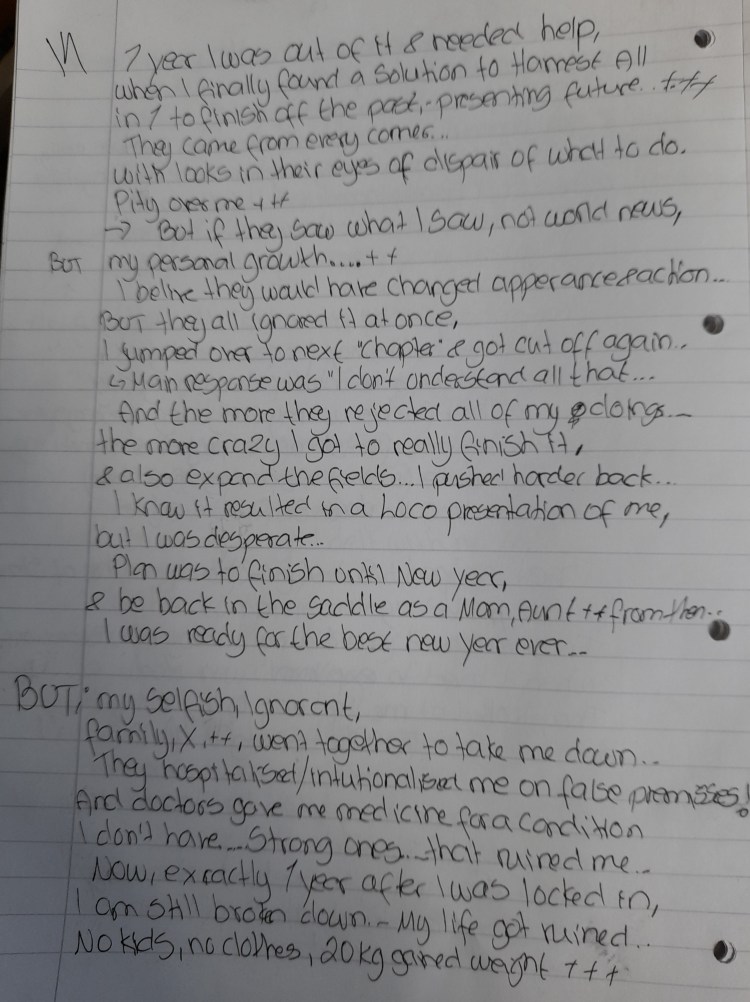 1 year I was out of it & needed help,
when I finally found a solution to Harrest All
in 1 to finish off the past,-presenting future.. +++
They came from every corner...
with looks in their eyes of dispair of what to do.
Pity over me +++
→ But if they saw what I saw, not world news,
BUT my personal growth....++
I belive they would have changed apperance&action...
BUT they all ignored it at once,
I jumped over to next "chapter" & got cut off again..
↳ Main response was "I don't understand all that...
And the more they rejected all of my doings...
the more crazy I got to really finish it,
& also expand the fields... I pushed harder back...
I know it resulted in a Loco presentation of me,
but I was desperate...
Plan was to finish until New year,
& be back in the saddle as a Mom, Aunt ++ from then...
I was ready for the best new year ever...
BUT; my selfish, Ignorant,
family, X, ++, went together to take me down..
They hospitalised/intutionalised me on false premisses!
And doctors gave me medicine for a condition
I don't have... Strong ones... that ruined me..
Now, exractly 1 year after I was locked in,
I am still broken down.- My life got ruined..
No kids, no clothes, 20kg gained weight +++